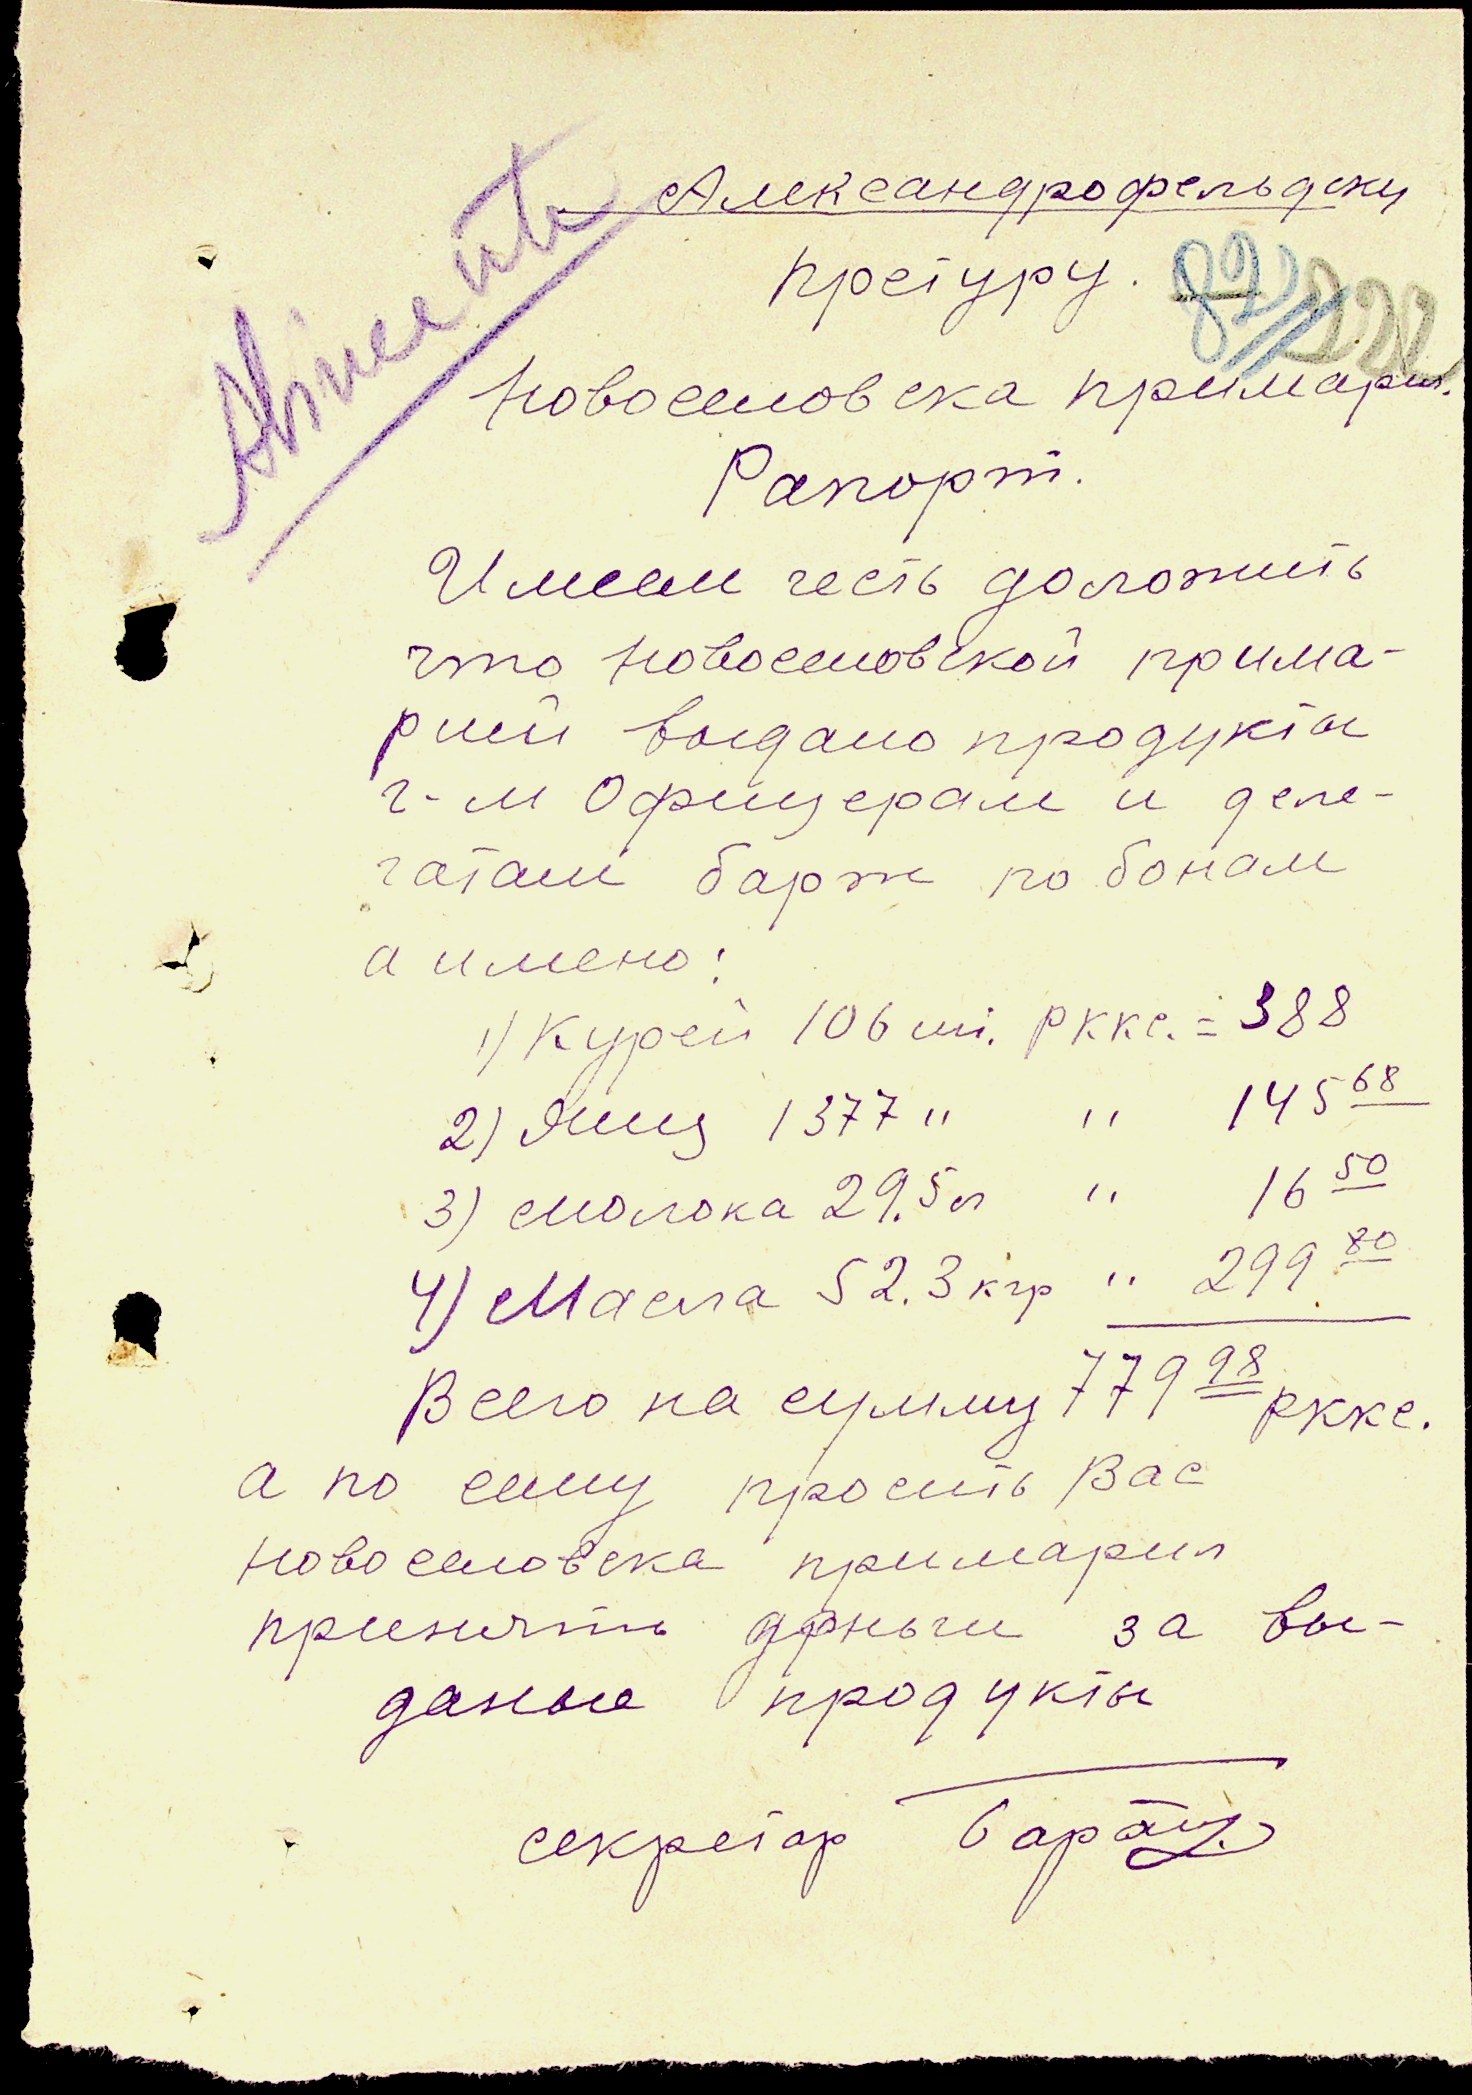 Александрофельдску
претуру.
82
Новоселовска примария.
Рапорт.
Имеем честь доложить
что Новоселовской прима-
рией выдано продукты
г-м Офицерам и деле-
гатам барж по бонам
а имено:
1) Курей 106 шт. РККС. = 388
2) Яиц 1377 " " 145 68
3) Молока 29.5 л " 16 50
4) Масла 52.3 кгр " 299 80
Всего на сумму 779 98 РККС.
а по сему просить Вас
Новоселовска примария
приснять деньги за вы-
даные продукты
секретар